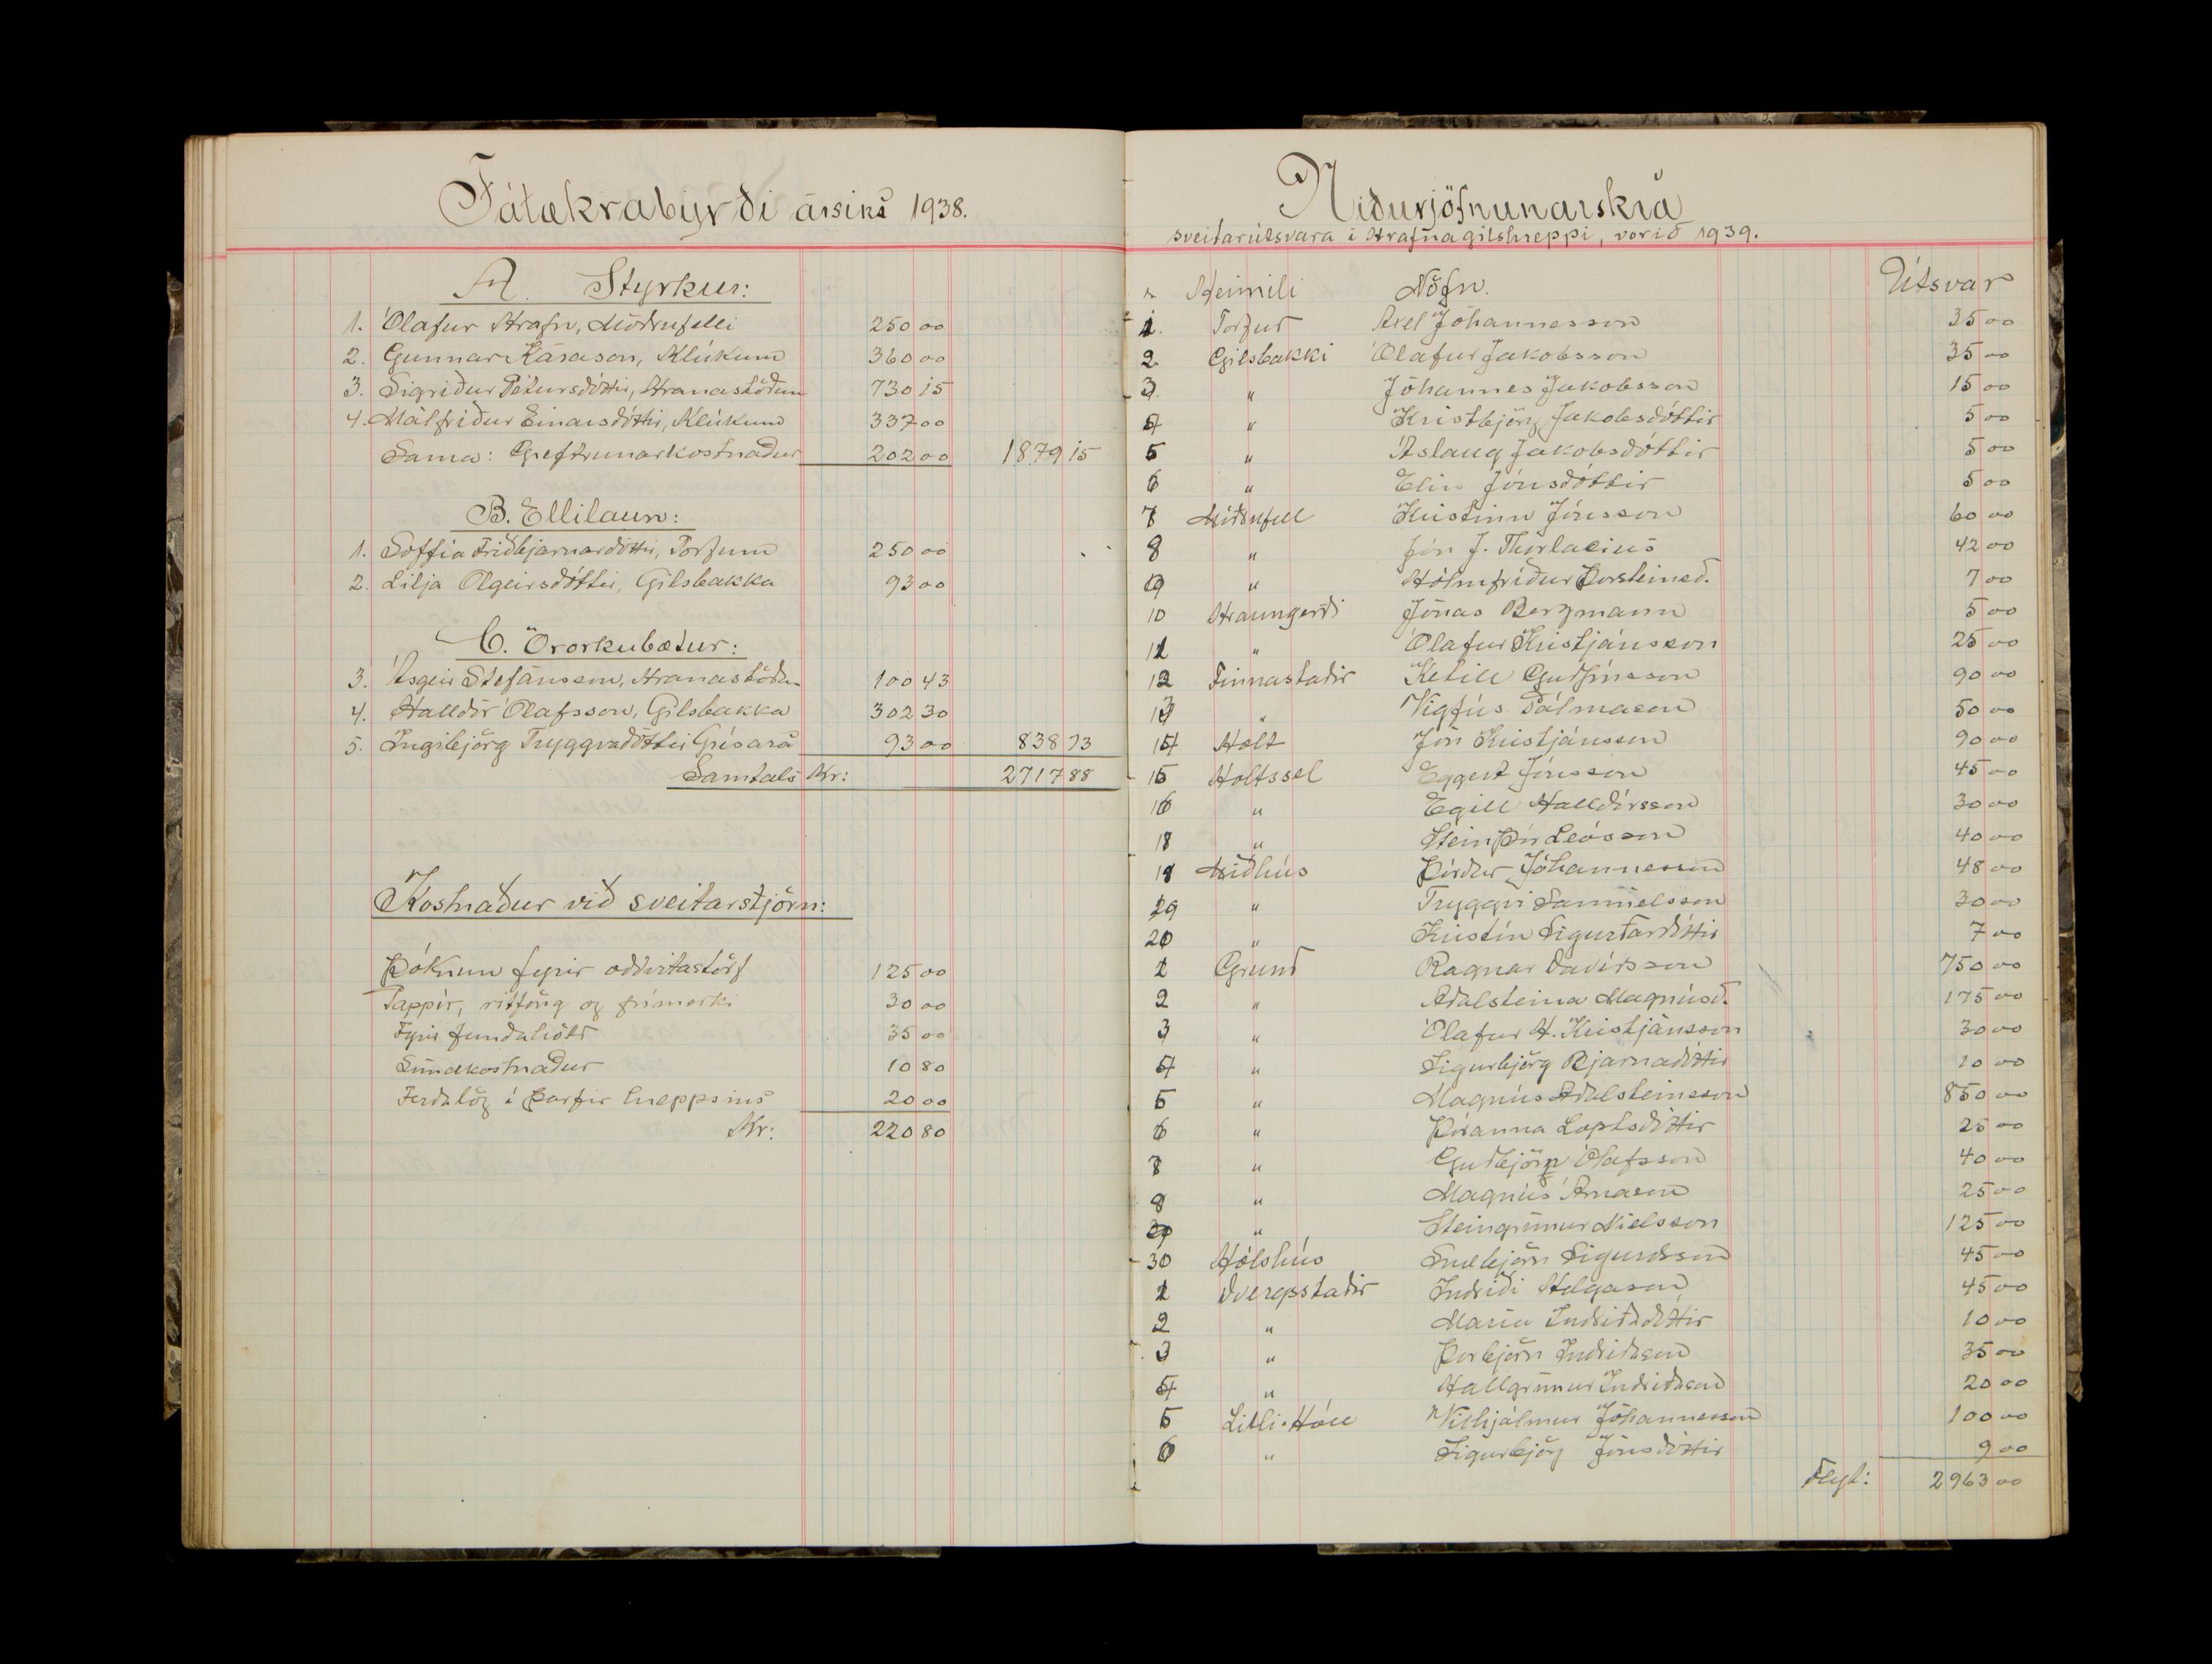 Fátækrabyrði ársins 1938.
A. Styrkur:
1. Ólafur Hrafn, Möðrufelli 250 00
2. Gunnar Kárason, Klúkum 360 00
3. Sigríður Pétursdóttir, Hranastöðum 730 15
4. Málfríður Einarsdóttir, Klúkum 337 00
Sama: Greftrunarkostnaður 202 00 1879 15
B. Ellilaun:
1. Soffía Friðbjarnardóttir, Torfum 250 00
2. Lilja Olgeirsdóttir, Gilsbakka 93 00
C. Örorkubætur:
3. Ásgeir Stefánsson, Hranastöðum 100 43
4. Halldór Ólafsson, Gilsbakka 302 30
5. Ingibjörg Tryggvadóttir Grísará 93 00 838 73
Samtals Kr: 2717 88
Kostnaður við sveitarstjórn:
Þóknun fyrir oddvitastörf 125 00
Pappír, ritföng og frímerki 30 00
Fyrir fundahöld 35 00
Símakostnaður 10 80
Ferðalög í þarfir hreppsins 20 00
Kr: 220 80
Niðurjöfnunarskrá
sveitarútsvara í Hrafnagilshreppi, vorið 1939.
Heimili Nöfn. Útsvar
1. Torfur Axel Jóhannesson 35 00
2. Gilsbakki Ólafur Jakobsson 35 00
3. " Jóhannes Jakobsson 15 00
4 " Kristbjörg Jakobsdóttir 5 00
5 " Áslaug Jakobsdóttir 5 00
6 " Elín Jónsdóttir 5 00
7 Möðrufell Kristinn Jónsson 60 00
8 " Jón J. Thorlacius 42 00
9 " Hólmfríður Þorsteinsd. 7 00
10 Hraungerði Jónas Bergmann 5 00
11 " Ólafur Kristjánsson 25 00
12 Finnastaðir Ketill Guðjónsson 90 00
13 " Vigfús Pálmason 50 00
14 Holt Jón Kristjánsson 90 00
15 Holtssel Eggert Jónsson 45 00
16 " Egill Halldórsson 30 00
18 " Steinþór Leósson 40 00
18 Miðhús Þórður Jóhannesson 48 00
19 " Tryggvi Samúelsson 30 00
20 " Kristín Sigurðardóttir 7 00
1 Grund Ragnar Davíðsson 750 00
2 " Aðalsteina Magnúsd. 175 00
3 " Ólafur H. Kristjánsson 30 00
4 " Sigurbjörg Bjarnadóttir 10 00
5 " Magnús Aðalsteinsson 850 00
6 " Þóranna Loptsdóttir 25 00
7 " Guðbjörn Ólafsson 40 00
8 " Magnús Árnason 25 00
29 " Steingrímur Níelsson 125 00
30 Hólshús Snæbjörn Sigurðsson 45 00
1 Dvergsstaðir Indriði Helgason 45 00
2 " María Indriðadóttir 10 00
3 " Þorbjörn Indriðason 35 00
4 " Hallgrímur Indriðason 20 00
5 Litli-Hóll Vilhjálmur Jóhannesson 100 00
6 " Sigurbjörg Jónsdóttir 9 00
Flyt: 2963 00